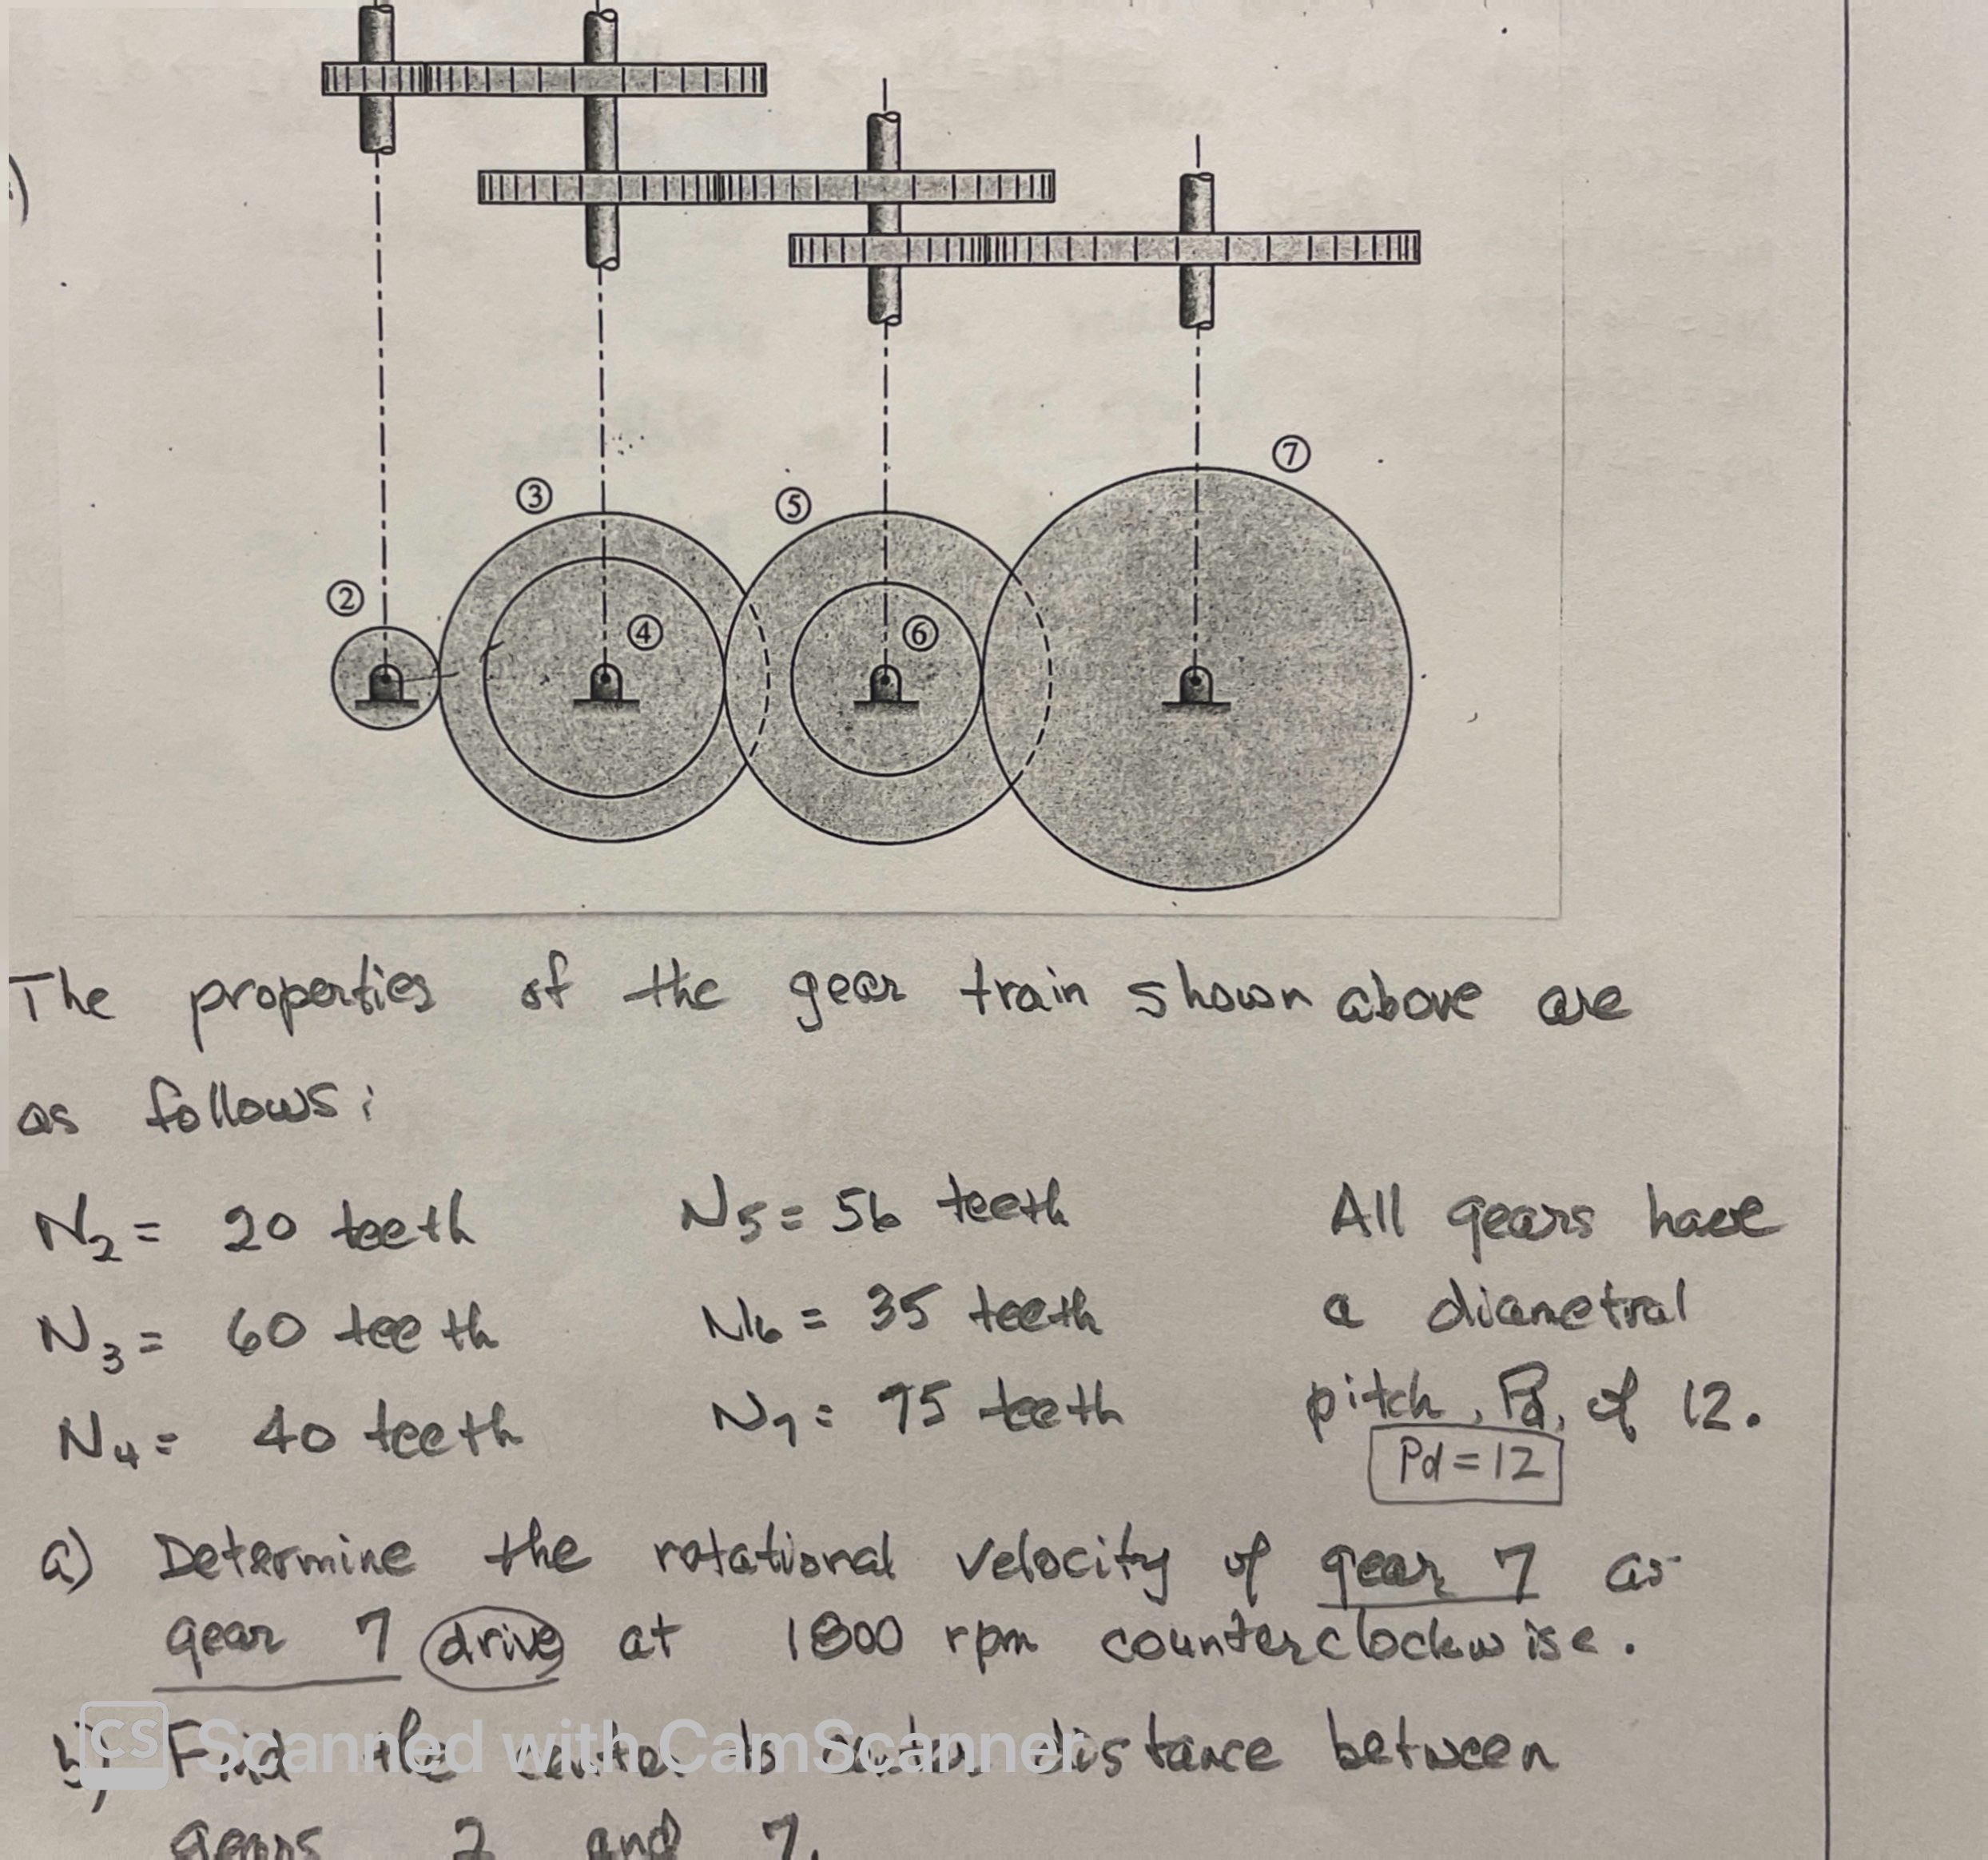 ⑦
③ ⑤
② ④ ⑥
The properties of the gear train shown above are
as follows:
N₂ = 20 teeth N₅ = 56 teeth All gears have
N₃ = 60 teeth N₆ = 35 teeth a diametral
N₄ = 40 teeth N₇ = 75 teeth pitch, Pd, of 12.
Pd = 12
a) Determine the rotational velocity of gear 7 as
gear 7 drive at 1800 rpm counterclockwise.
b) Find the center to center distance between
gears 2 and 7.
CS Scanned with CamScanner